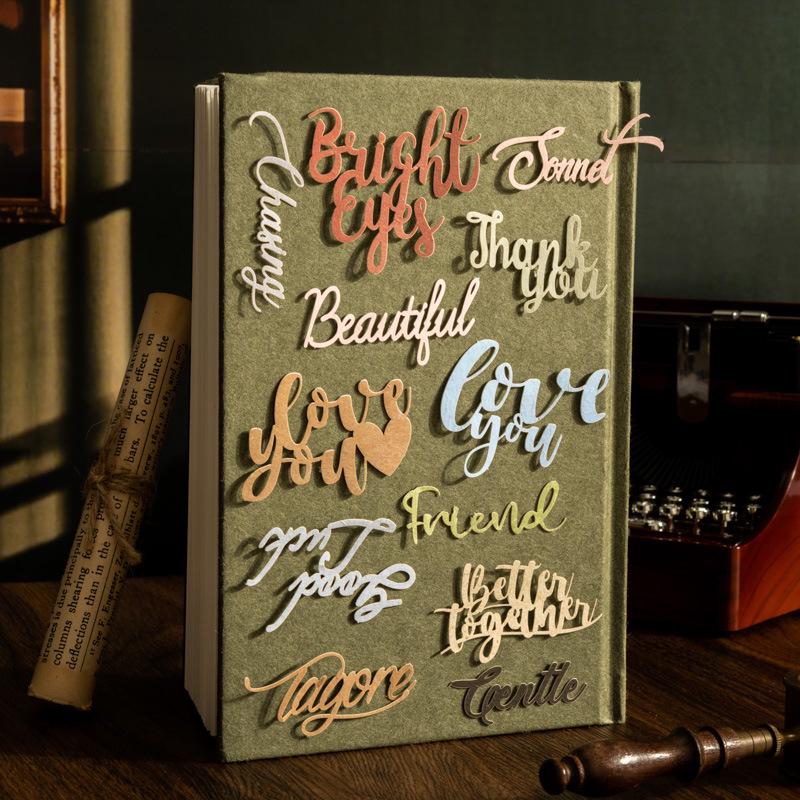 Chasing
Bright
Eyes
Sonnet
Thank
you
Beautiful
love
you
love
you
Friend
Good
Luck
Better
together
Tagore
Gentle
case of latticed
much larger effect on
bars. To calculate the
stresses is due principally to the
columns shearing
deflections than in the